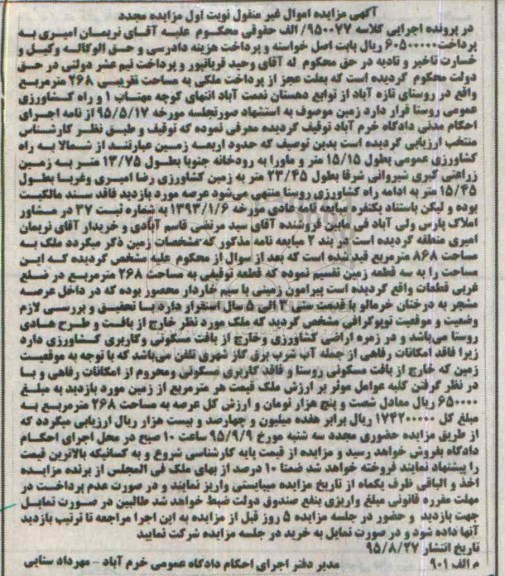 آگهی مزایده اموال غیر منقول نوبت اول مزایده مجدد
در پرونده اجرایی کلاسه ۹۵۰۰۷۷/ الف حقوقی محکوم علیه آقای نریمان امیری به
پرداخت ۶۰۵۰۰۰۰۰ ریال بابت اصل خواسته و پرداخت هزینه دادرسی و حق الوکاله وکیل و
خسارت تاخیر و تادیه در حق محکوم له آقای وحید قربانپور و پرداخت نیم عشر دولتی در حق
دولت محکوم گردیده است که بعلت عجز از پرداخت ملکی به مساحت تقریبی ۲۶۸ مترمربع
واقع در روستای تازه آباد از توابع دهستان نعمت آباد انتهای کوچه مهتاب ۱ و راه کشاورزی
عمومی روستا قرار دارد زمین موصوف به استشهاد صورتجلسه مورخه ۹۵/۵/۱۷ از نامه اجرای
احکام مدنی دادگاه خرم آباد توقیف گردیده معرفی نموده که توقیف و طبق نظر کارشناس
منتخب ارزیابی گردیده است بدین توصیف که حدود اربعه زمین عبارتند از شمالا به راه
کشاورزی عمومی بطول ۱۵/۱۵ متر و ماورا به رودخانه جنوبا بطول ۱۳/۷۵ متر به زمین
زراعتی کبری شیروانی شرقا بطول ۲۳/۴۵ متر به زمین کشاورزی رضا امیری وغربا بطول
۱۵/۴۵ متر به ادامه راه کشاورزی روستا منتهی می‌شود عرصه مورد بازدید فاقد سند مالکیت
بوده و لیکن باستناد یکنفره مبایعه نامه عادی مورخه ۱۳۹۳/۱/۶ به شماره ثبت ۳۷ در مشاور
املاک پارس ولی آباد فی مابین فروشنده آقای سید مرتضی قاسم آبادی و خریدار آقای نریمان
امیری منعقد گردیده است در بند ۲ مبایعه نامه مذکور که مشخصات زمین ذکر میگردد ملک به
مساحت ۸۶۸ مترمربع قید شده است که بعد از سوال از محکوم علیه مشخص گردیده که این
مساحت را به سه قطعه زمین تقسیم نموده که قطعه توقیفی به مساحت ۲۶۸ مترمربع در ضلع
غربی قطعات واقع گردیده است پیرامون زمینی با سیم خاردار محصور بوده که در داخل عرصه
مشجر به درختان خرمالو با قدمت سنی ۳ الی ۵ سال استقرار دارد با تحقیق و بررسی لازم
وضعیت و موقعیت توپوگرافی مشخص گردید که ملک مورد نظر خارج از بافت و طرح هادی
روستا می‌باشد و در زمره اراضی کشاورزی وخارج از بافت مسکونی وکاربری کشاورزی دارد
زیرا فاقد امکانات رفاهی از جمله آب شرب برق گاز شهری تلفن می‌باشد که با توجه به موقعیت
زمین که خارج از بافت مسکونی روستا و فاقد کاربری مسکونی ومحروم از امکانات رفاهی و با
در نظر گرفتن کلیه عوامل موثر بر ارزش ملک قیمت هر مترمربع از زمین مورد بازدید به مبلغ
۶۵۰۰۰۰ ریال معادل شصت و پنج هزار تومان و ارزش کل عرصه به مساحت ۲۶۸ مترمربع به
مبلغ کل ۱۷۴۲۰۰۰۰۰ ریال برابر هفده میلیون و چهارصد و بیست هزار ریال ارزیابی میگردد که
از طریق مزایده حضوری مجدد سه شنبه مورخ ۹۵/۹/۹ ساعت ۱۰ صبح در محل اجرای احکام
دادگاه بفروش خواهد رسید و مزایده از قیمت پایه کارشناسی شروع و به کسانیکه بالاترین قیمت
را پیشنهاد نمایند فروخته خواهد شد ضمنا ۱۰ درصد از بهای ملک فی المجلس از برنده مزایده
اخذ و الباقی ظرف یکماه از تاریخ مزایده میبایستی واریز نمایند و در صورت عدم پرداخت در
مهلت مقرره قانونی مبلغ واریزی بنفع صندوق دولت ضبط خواهد شد طالبین در صورت تمایل
جهت بازدید و حضور در جلسه مزایده ۵ روز قبل از مزایده به این اجرا مراجعه تا ترتیب بازدید
آنها داده شود و در صورت تمایل به خرید در جلسه مزایده شرکت نمایید
تاریخ انتشار ۹۵/۸/۲۷
م الف ۹۰۱ مدیر دفتر اجرای احکام دادگاه عمومی خرم آباد - مهرداد سنایی